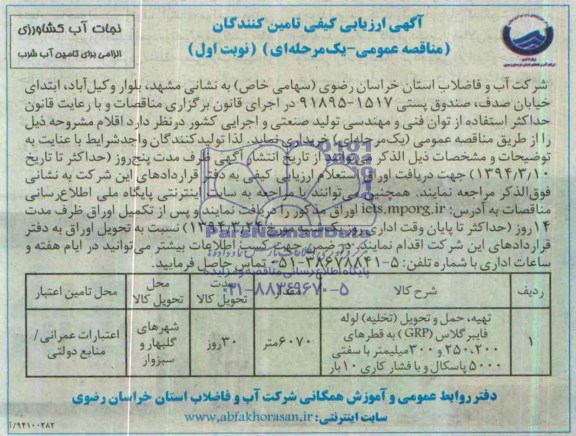 آگهی ارزیابی کیفی تامین کنندگان
(مناقصه عمومی-یک‌مرحله‌ای) (نوبت اول)
نجات آب کشاورزی
الزامی برای تامین آب شرب
شرکت آب و فاضلاب استان خراسان رضوی (سهامی خاص) به نشانی مشهد، بلوار وکیل‌آباد، ابتدای
خیابان صدف، صندوق پستی ۱۵۱۷-۹۱۸۹۵ در اجرای قانون برگزاری مناقصات و با رعایت قانون
حداکثر استفاده از توان فنی و مهندسی تولید صنعتی و اجرایی کشور درنظر دارد اقلام مشروحه ذیل
را از طریق مناقصه عمومی (یک‌مرحله‌ای) خریداری نماید. لذا تولیدکنندگان واجدشرایط با عنایت به
توضیحات و مشخصات ذیل الذکر می‌توانند از تاریخ انتشار آگهی ظرف مدت پنج‌روز (حداکثر تا تاریخ
۱۳۹۴/۳/۱۰) جهت دریافت اوراق استعلام ارزیابی کیفی به دفتر قراردادهای این شرکت به نشانی
فوق‌الذکر مراجعه نمایند. همچنین می‌توانند با مراجعه به سایت اینترنتی پایگاه ملی اطلاع‌رسانی
مناقصات به آدرس: iets.mporg.ir اوراق مذکور را دریافت نمایند و پس از تکمیل اوراق ظرف مدت
۱۴ روز (حداکثر تا پایان وقت اداری روز مورخ ۱۳۹۴/۳/۲۴) نسبت به تحویل اوراق به دفتر
قراردادهای این شرکت اقدام نمایند. در ضمن جهت کسب اطلاعات بیشتر می‌توانید در ایام هفته و
ساعات اداری با شماره تلفن: ۵-۳۸۶۷۸۸۴۱-۰۵۱ تماس حاصل فرمایید.
ParsNamadData
پایگاه اطلاع رسانی مناقصه و مزایده
۰۲۱-۸۸۳۴۹۶۷۰-۵
ردیف شرح کالا مقدار مدت تحویل کالا محل تحویل کالا محل تامین اعتبار
۱ تهیه، حمل و تحویل (تخلیه) لوله فایبرگلاس (GRP) به قطرهای ۲۰۰، ۲۵۰ و ۳۰۰ میلیمتر با سفتی ۵۰۰۰ پاسکال و با فشار کاری ۱۰ بار ۶۰۷۰متر ۳۰روز شهرهای گلبهار و سبزوار اعتبارات عمرانی/ منابع دولتی
دفتر روابط عمومی و آموزش همگانی شرکت آب و فاضلاب استان خراسان رضوی
سایت اینترنتی: www.abfakhorasan.ir
۹۴۱۰۰۲۸۲/آ